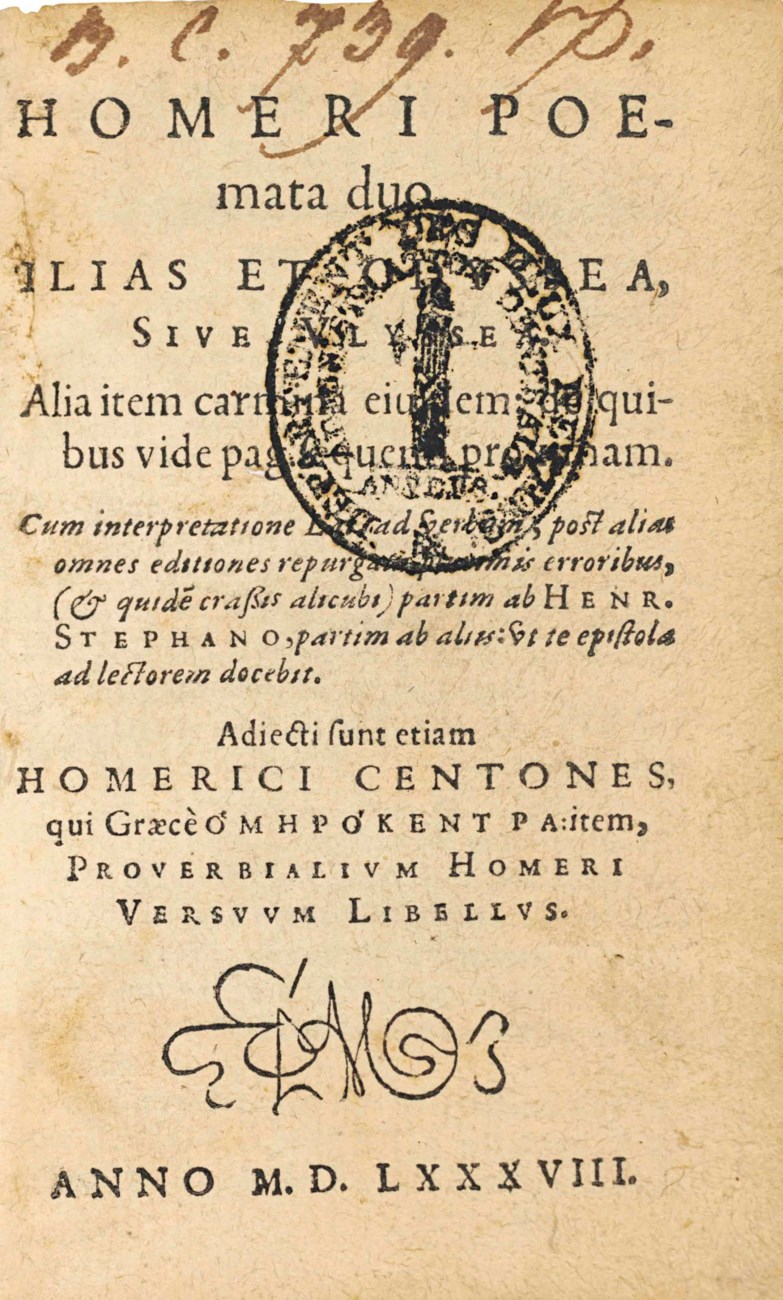 B. C. 739.
HOMERI POE-
mata duo,
ILIAS ET ODYSSEA,
SIVE VLYSSEA.
Alia item carmina eiusdem, de quibus
bus vide pagina quem proximam.
Cum interpretatione Lat. ad verbum, post alias
omnes editiones repurgata plurimis erroribus,
(& quidē craßis alicubi) partim ab HENR.
STEPHANO, partim ab aliis: vt te epistola
ad lectorem docebit.
Adiecti sunt etiam
HOMERICI CENTONES,
qui Græcè ὉΜΗΡΌΚΕΝΤΡΑ: item,
PROVERBIALIVM HOMERI
VERSVVM LIBELLVS.
ANNO M. D. LXXXVIII.